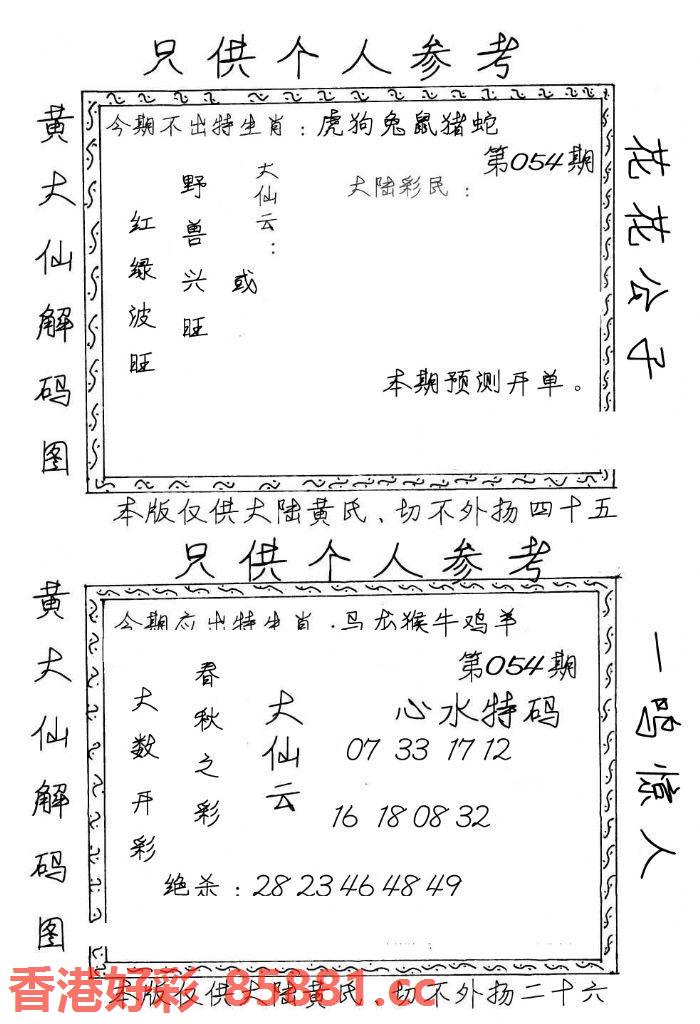 只供个人参考
黄大仙解码图
今期不出特生肖：虎狗兔鼠猪蛇
第054期
大仙云：
野兽兴旺
或
红绿波旺
大陆彩民：
本期预测开单。
花花公子
本版仅供大陆黄氏、切不外扬四十五
只供个人参考
黄大仙解码图
今期应出特生肖：马龙猴牛鸡羊
第054期
春秋之彩
大数开彩
大仙云
心水特码
07 33 17 12
16 18 08 32
绝杀：28 23 46 48 49
一鸣惊人
本版仅供大陆黄氏、切不外扬二十六
香港好彩 85881.cc